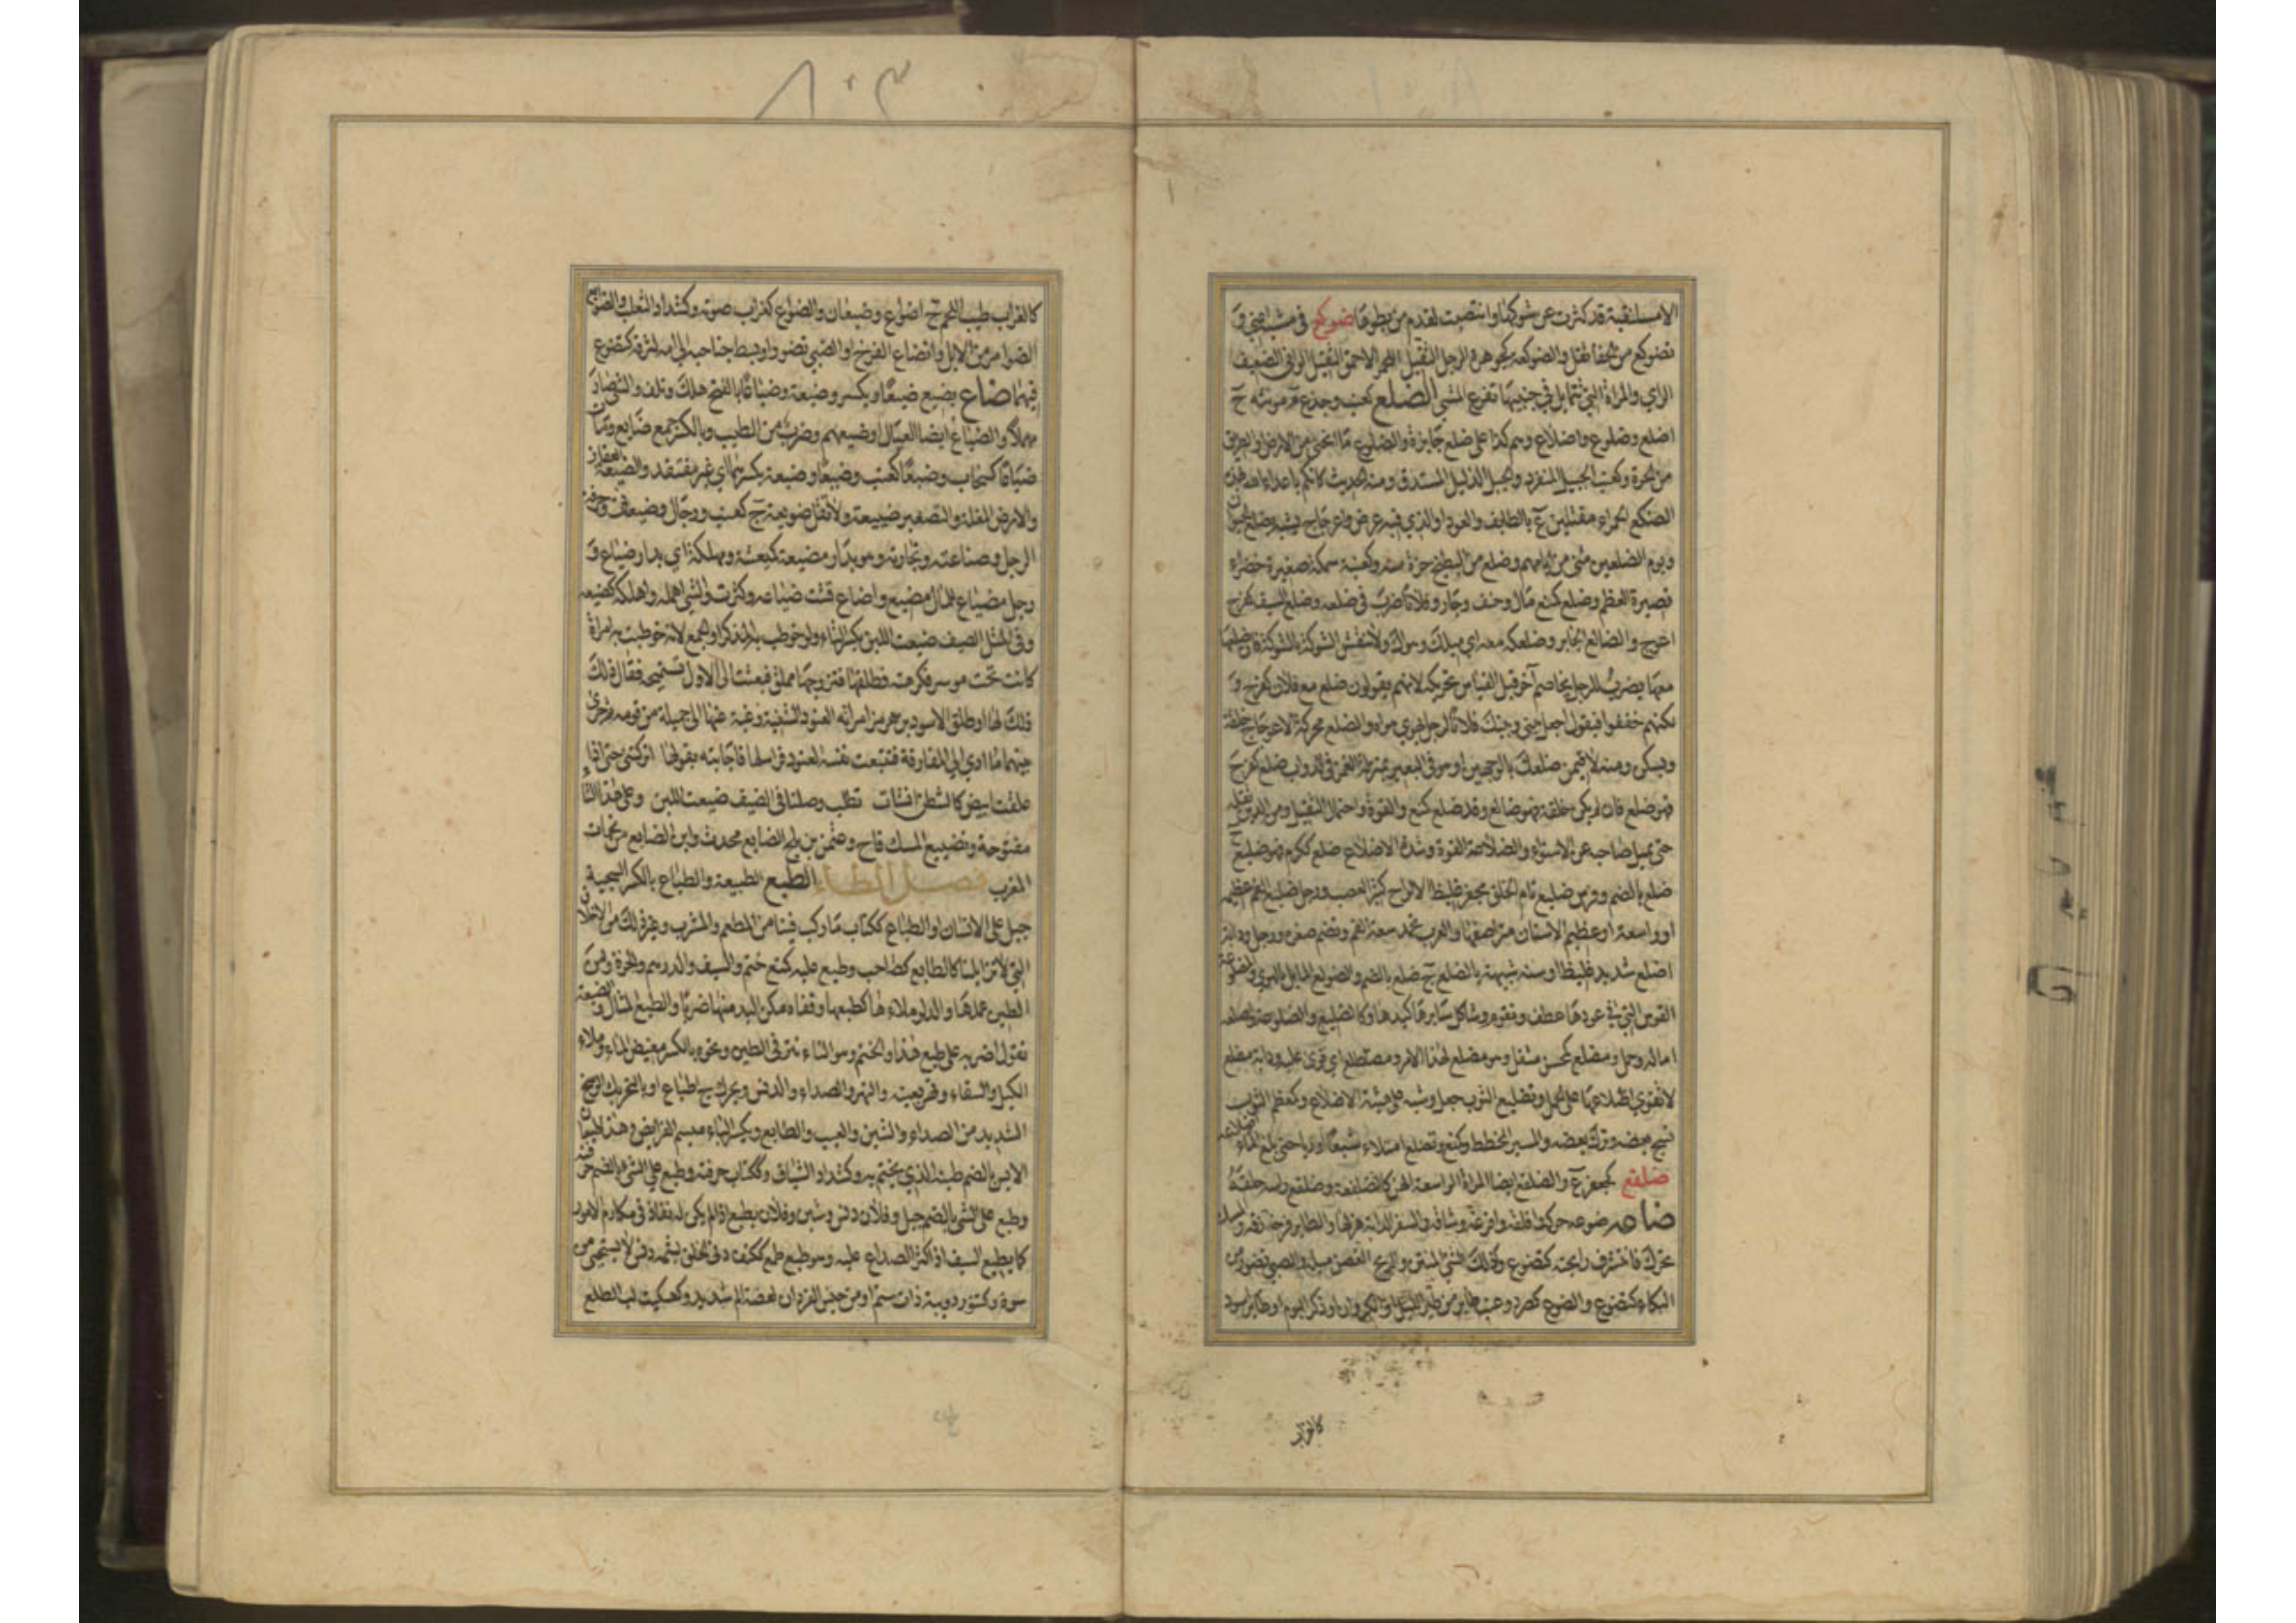 الامسلنقية قد كثرت عن شوكها وانتصبت لقدم من يطوها ضوكع في مشيه اعيى و
تضوكع من الحفا ثقل والضوكعة كجوهرة الرجل الثقيل اللحم الاحمق الثقيل الواني الضعيف
الراي والمراة التي تتمايل في جنبيها تفرع المشي الضلع كعنب وجذع م مونثه ج
اضلع وضلوع واضلاع وهم كذا على ضلع جايزة والضلوع ما انحنى من الارض او الطريق
من الحرة وكعنب الجبيل المنفرد والجبل الذليل المستدق ومنه الحديث كانكم يا عداء الله بهذه
الضلع الحمراء مقتلين ع بالطايف والعود او الذي فيه عرض واعوجاج يشبه بضلع الحيوان
ويوم الضلعين مثنى من ايامهم وضلع من البطيخ حزة منه وكعنبة سمكة صغيرة خضراء
قصيرة العظم وضلع كمنع مال وجنف وجار وفلانا ضرب في ضلعه وضلع السيف كفرح
اعوج والضالع الجاير وضلعك معه اي ميلك وهواك ولا تنقش الشوكة بالشوكة فان ضلعها
معها يضرب للرجل يخاصم آخر قيل القياس تحريكه لانهم يقولون ضلع مع فلان كفرح و
لكنهم خففوا فيقول اجعل بيني وبينك فلانا لرجل يهوي هواه والضلع محركة الاعوجاج خلقة
ويسكن ومنه لاقيمن ضلعك بالوجهين او هو في البعير بمنزلة الغمز في الدواب ضلع كفرح
فهو ضلع فان لم يكن خلقة فهو ضالع وقد ضلع كمنع والقوة واحتمال الثقيل ومن الدين ثقله
حتى يميل صاحبه عن الاستواء والضلاعة القوة وشدة الاضلاع ضلع ككرم فهو ضليع ج
ضلع بالضم وفرس ضليع تام الخلق مجفر غليظ الالواح كثير العصب ورجل ضليع الفم عظيمه
او واسعه او عظيم الاسنان متراصفها والعرب تحمد سعة الفم وتضم صغره ورجل ودابة
اضلع شديد غليظ او سنه شبيهة بالضلع ج ضلع بالضم والضولع المايل بالهوى والمضلوعة
القوس التي في عودها عطف وتقويم وشاكل سايرها كبدها وكالضليع والضلوعة واضلعه
اماله وحمل مضلع كمحسن مثقل وهو مضلع لهذا الامر ومضطلع اي قوي عليه ودابة مضلع
لا تقوي اضلاعها على الحمل وتضليع الثوب جعل وشيه على هيئة الاضلاع وكمعظم الثوب
نسج بعضه وترك بعضه والسير المخطط وكمنع وتضلع امتلاء شبعا او ريا حتى بلغ الماء اضلاعه
ضلفع كجعفر ع والضلفع ايضا المراة الواسعة الهن كالضلفعة وضلفع راسه حلقه
ضاعه ضوعه حركه واقلقه وافزعه وشاقه والسفر الدابة هزلها والطاير فرخه زقه والمسك
تحرك فانتشرت رايحته كتضوع وكذلك الشي المنتن والريح الغصن ميله والصبي تضور من
البكاء كتضوع والضوع كصرد وعنب طاير من طير الليل او الكروان او ذكر البوم او طاير اسود
كالغراب
٨٠٣
كالغراب طيب اللحم ج اضواع وضيعان والضواع كغراب صوته وكشداد الثعلب والضوايع
الضوامر من الابل وانضاع الفرخ او الصبي تضور او بسط جناحيه الى امه لتزقه كتضوع
فيهما ضاع يضيع ضيعا ويكسر وضيعة وضياعا بالفتح هلك وتلف والشي صار
مهملا والضياع ايضا العيال او ضيعهم وضرب من الطيب وبالكسر جمع ضايع ومات
ضياعا كسحاب وضيعا كعنب وضيعا وضيعة بكسرهما اي غير مفتقد والضيعة العقار
والارض المغلة والتصغير ضييعة ولا تقل ضويعة ج كعنب ورجال وضيعات وحرفة
الرجل وصناعته وتجارته وهو بدار مضيعة كمعيشة ومهلكة اي بدار ضياع و
رجل مضياع للمال مضيع واضاع فشت ضياعه وكثرت والشي اهمله واهلكه كضيعه
وفي المثل الصيف ضيعت اللبن بكسر التاء ولو خوطب به المذكر او الجمع لانه خوطبت به امراة
كانت تحت موسر فكرهته فطلقها فتزوجها مملق فبعثت الى الاول تستميحه فقال ذلك
ذلك لها او طلق الاسود بن هرمز امراته العنود الشنية رغبة عنها الى جميلة من قومه ثم جرى
بينهما ما ادي الى المفارقة فتتبعت نفسه العنود فراسلها فاجابته بقولها اتركتني حتى اذا
علقت ابيض كالشطن انشات تطلب وصلنا في الصيف ضيعت اللبن وعلى هذا التاء
مفتوحة وتضييع المسك فاح وعثمن بن بلج الضايع محدث وابن الضايع من نحات
المغرب فصل الطاء الطبع الطبيعة والطباع بالكسر السجية
جبل على الانسان او الطباع ككتاب ما ركب فينا من المطعم والمشرب وغير ذلك من الاخلاق
التي لا تزايلنا كالطابع كصاحب وطبع عليه كمنع ختم والسيف والدرهم والجرة ومن
الطين عملها والدلو ملاءها كطبعها وقفاه مكن اليد منها ضربا والطبع المثال والصيغة
تقول اضربه على طبع هذا والختم وهو التاءثير في الطين ونحوه وبالكسر مغيض الماء وملاء
الكيل والسقاء وقد يعينه والنهر والصداء والدنس ويحرك ج اطباع او بالتحريك الوسخ
الشديد من الصداء والشين والعيب والطابع ويكسر الباء ميسم الفرايض وهذا طبعان
الامير بالضم طينه الذي يختم به وكشداد السياف وككتاب حرفته وطبع على الشي بالضم
وطبع على الشي بالضم جبل وفلان دنس وشين وفلان يطبع اذا لم يكن له نفاذ في مكارم الامور
كما يطبع السيف اذ اكثر الصداع عليه وهو طبع طمع ككتف دني الخلق لئيمه دنس لا يستحيي من
سوءة وكتنور دويبة ذات سم او من جنس القردان لعضته الم شديد وكسكيت لب الطلع